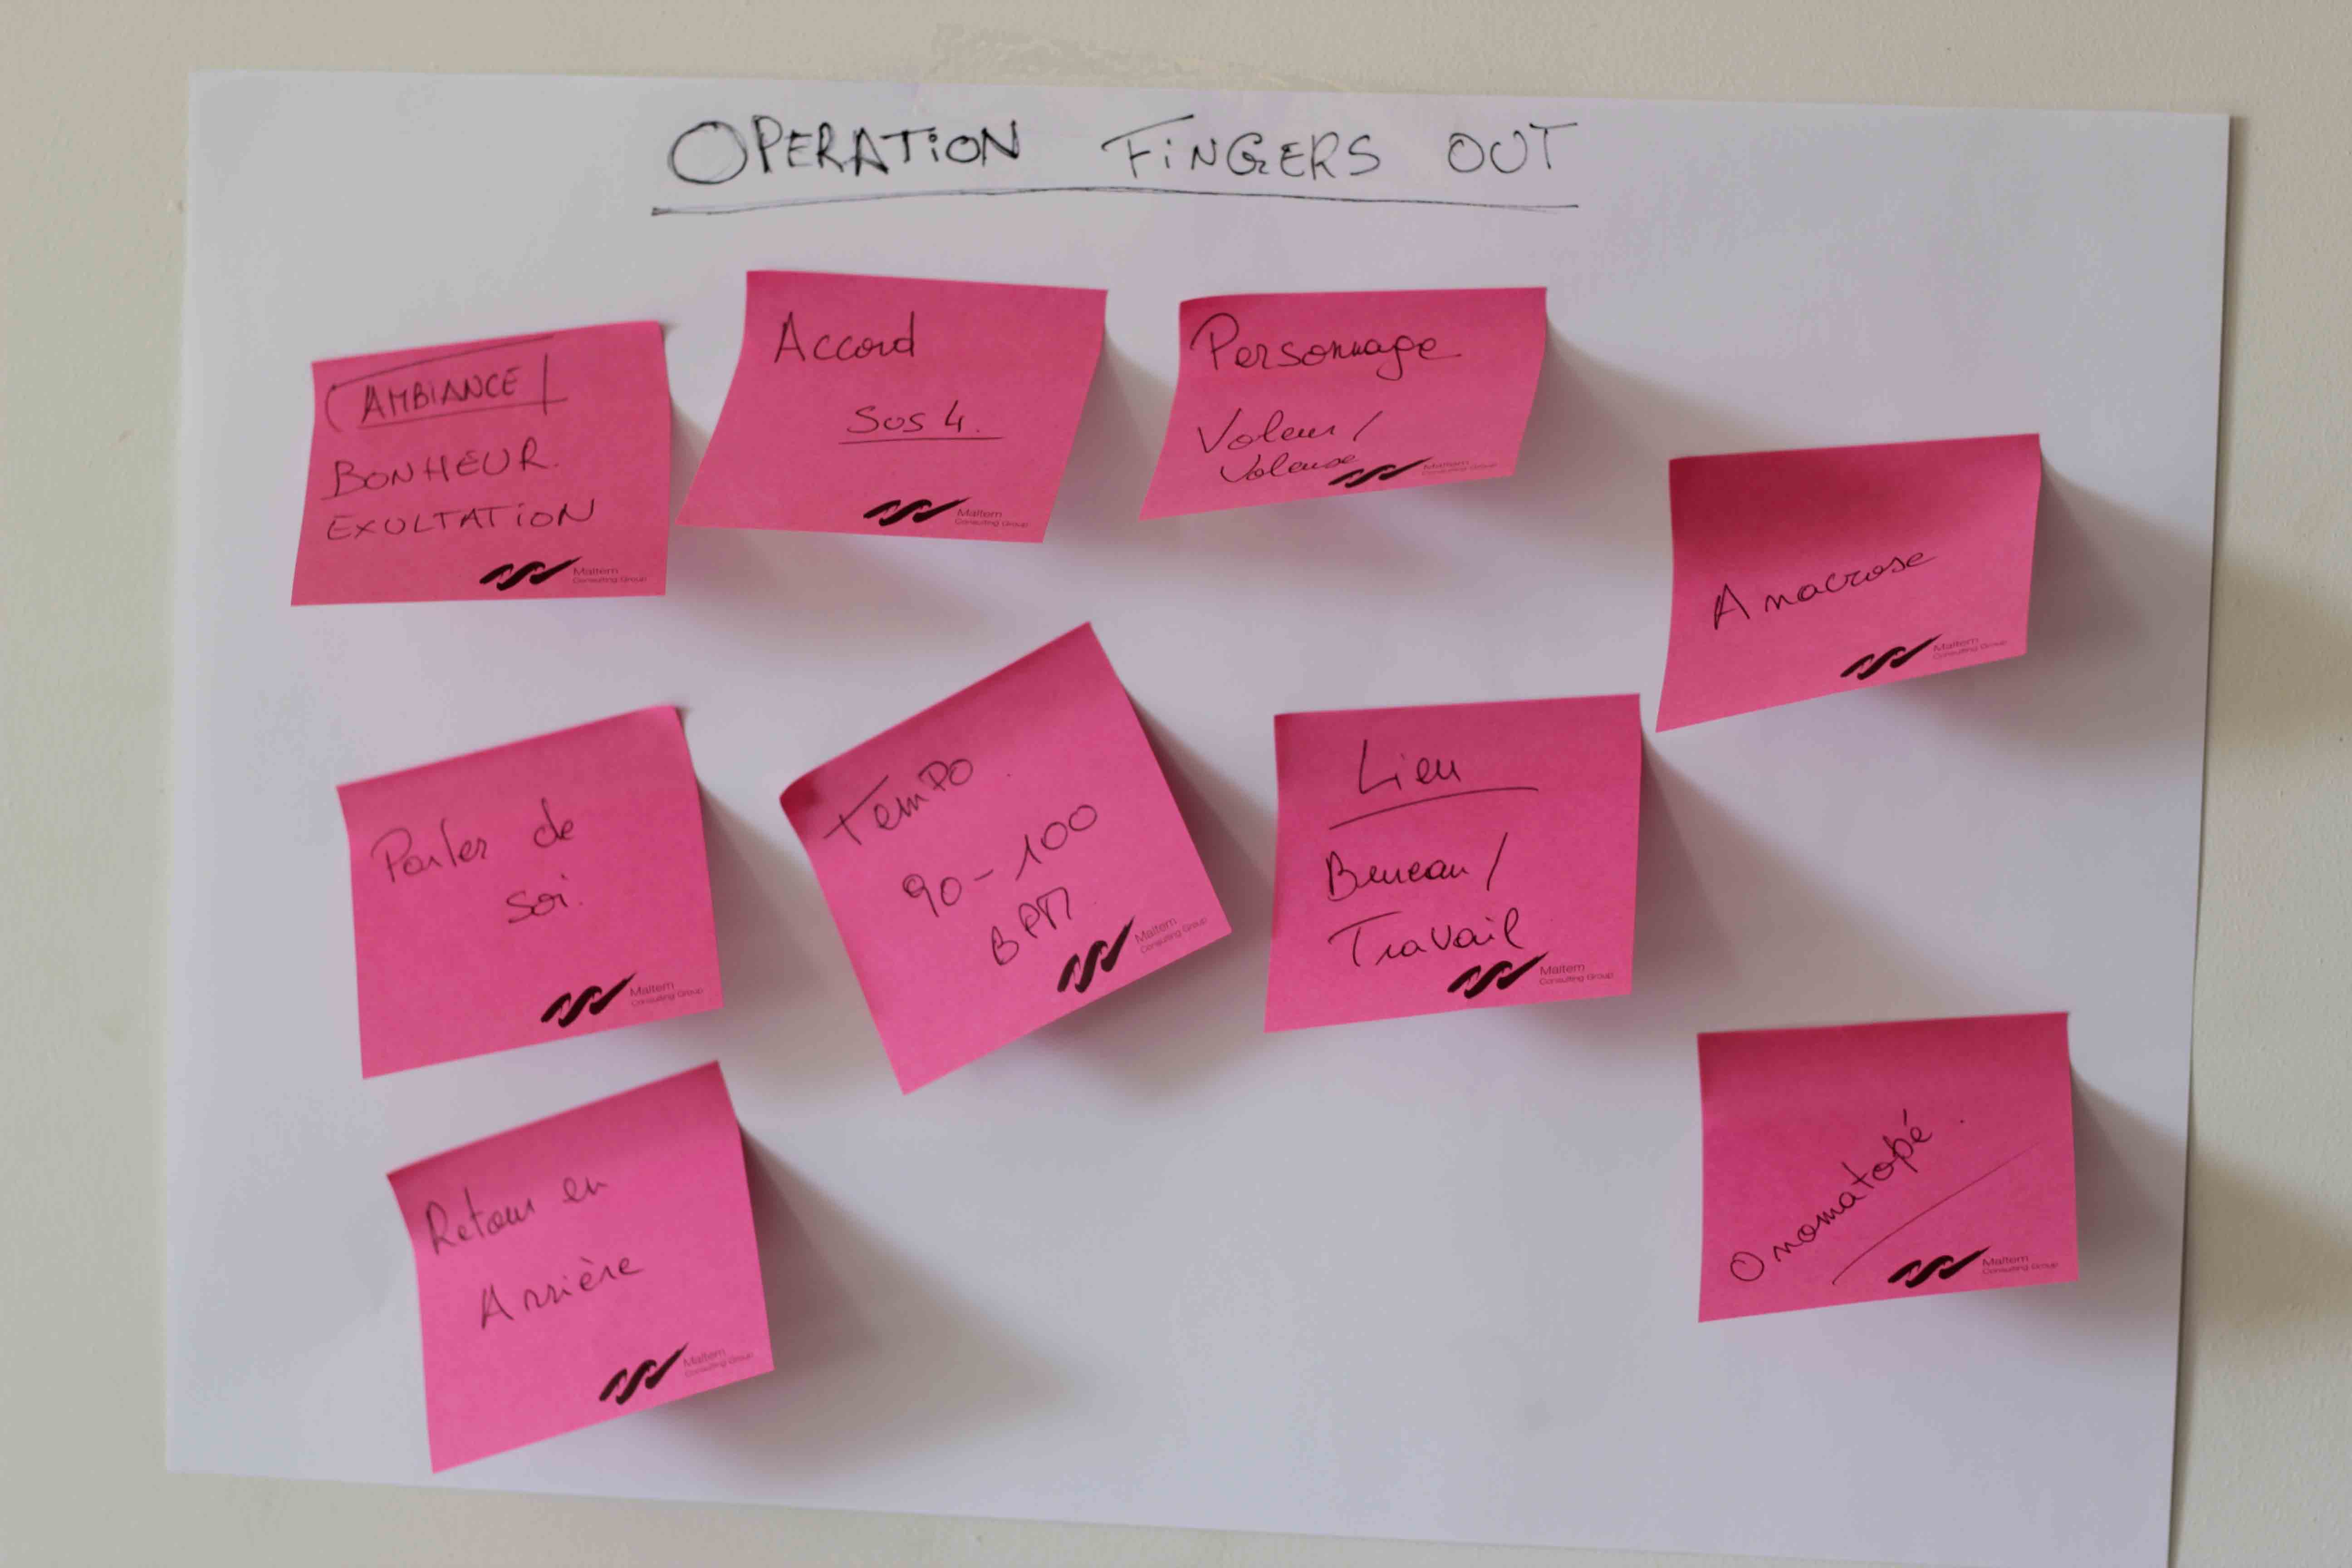 OPERATION FINGERS OUT
AMBIANCE
BONHEUR.
EXULTATION
Maltem
Consulting Group
Accord
Sus 4.
Maltem
Consulting Group
Personnage
Voleur /
Voleuse
Maltem
Consulting Group
Anacrose
Maltem
Consulting Group
Parler de
soi.
Maltem
Consulting Group
Tempo
90-100
BPM
Maltem
Consulting Group
Lieu
Bureau /
Travail
Maltem
Consulting Group
Retour en
Arrière
Maltem
Consulting Group
Onomatopé.
Maltem
Consulting Group